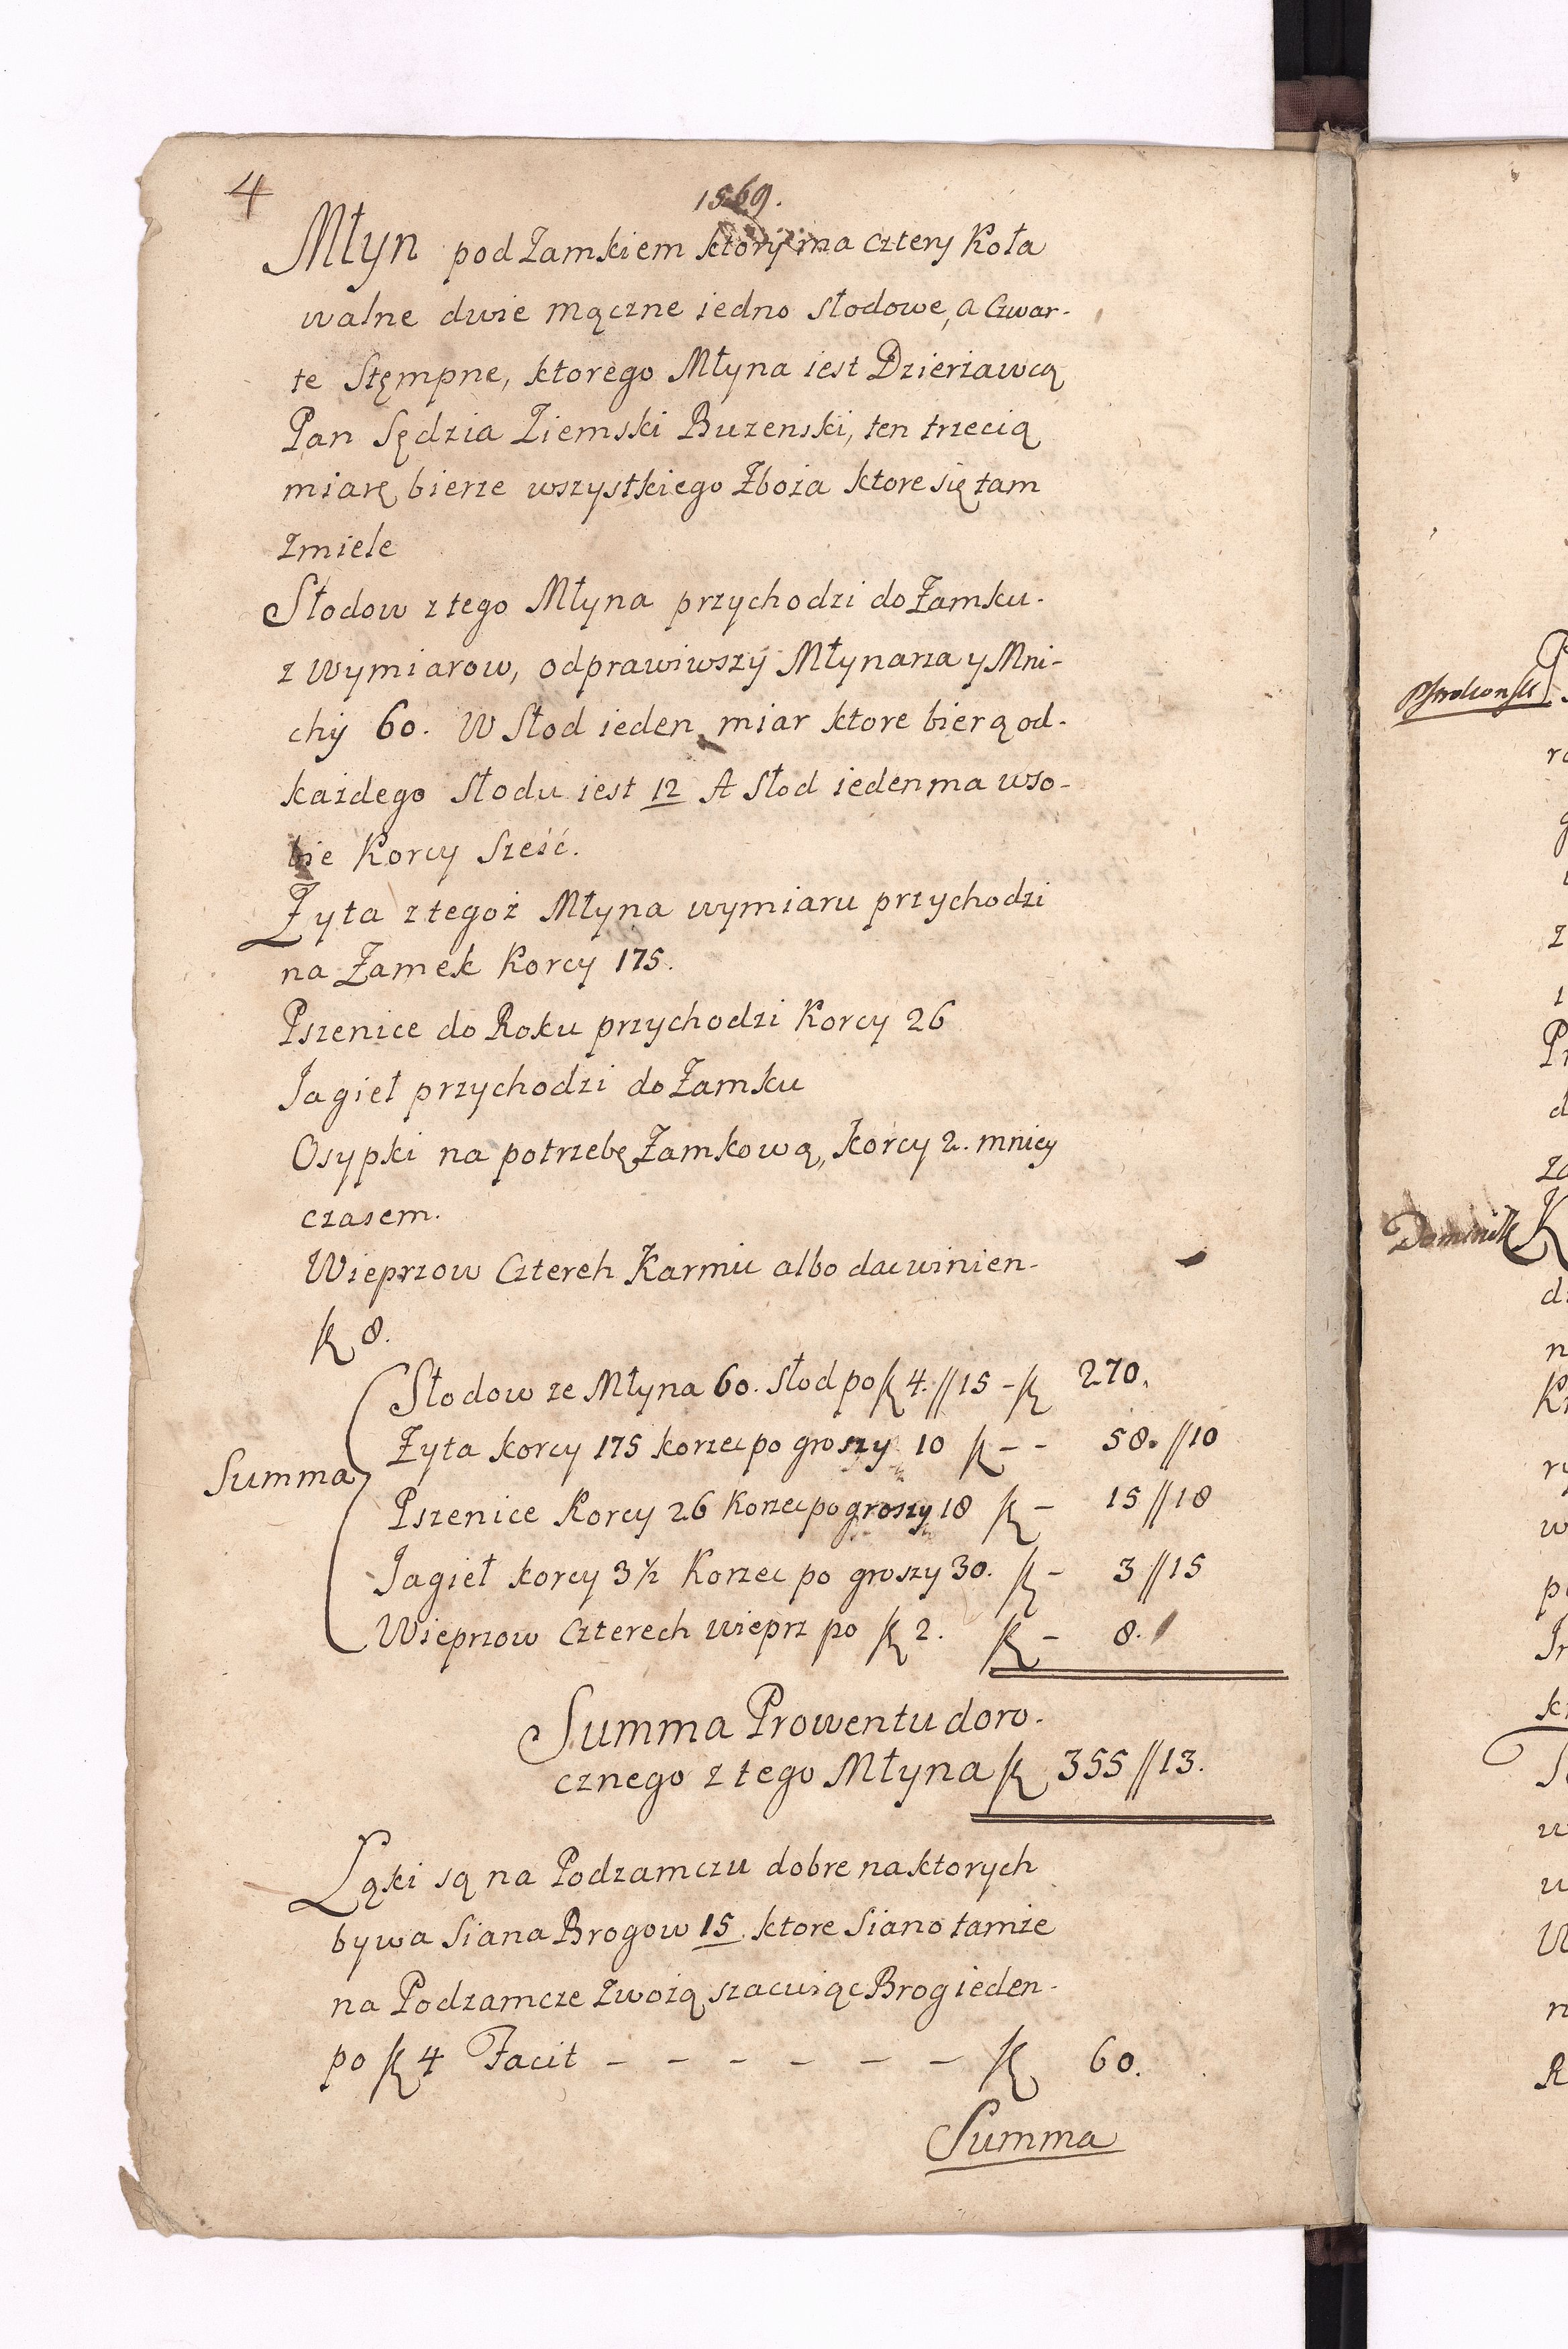 4
1569.
Młyn pod Zamkiem ktory ma cztery Koła
walne dwie mączne iedno słodowe, a Czwar-
te Stęmpne, ktorego Młyna iest Dzierżawcą
Pan Sędzia Ziemski Buzenski, ten trzecią
miarę bierze wszystkiego Zboża ktore się tam
zmiele
Słodow z tego Młyna przychodzi do Zamku.
z Wymiarow, odprawiwszy Młynarza y Mni-
chy 60. W Słod ieden miar ktore bierą od-
każdego słodu iest 12 A Słod ieden ma wso-
bie Korcy Sześć.
Żyta z tegoż Młyna wymiaru przychodzi
na Zamek Korcy 175.
Pszenice do Roku przychodzi Korcy 26
Jagieł przychodzi do Zamku
Osypki na potrzebę Zamkową, korcy 2. mniey
czasem.
Wieprzow Cztereh Karmić albo dac winien-
ꝶ 8.
Summa
Słodow ze Młyna 60. słod po ꝶ 4.//15 - ꝶ 270.
Żyta korcy 175 korzec po groszy 10 ꝶ - - 58.//10
Pszenice Korcy 26 Korzec po groszy 18 ꝶ - 15//18
Jagieł korcy 3 1/2 Korzec po groszy 30. ꝶ - 3//15
Wieprzow Czterech wieprz po ꝶ 2. ꝶ - 8.
Summa Prowentu doro-
cznego z tego Młyna ꝶ 355//13.
Łąki są na Podzamczu dobre na ktorych
bywa Siana Brogow 15. ktore Siano tamże
na Podzamcze Zwożą szacuiąc Brog ieden-
po ꝶ 4 Facit - - - - - - ꝶ 60.
Summa
Dominik